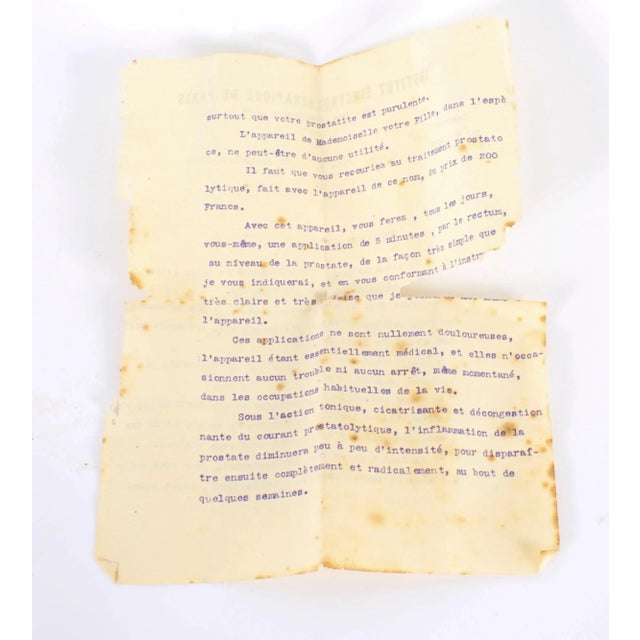 surtout que votre prostatite est purulente.
L'appareil de Mademoiselle votre Fille, dans l'espè
ce, ne peut-être d'aucune utilité.
Il faut que vous recouriez au traitement prostato
lytique, fait avec l'appareil de ce nom, du prix de 200
Francs.
Avec cet appareil, vous ferez, tous les jours,
vous-même, une application de 5 minutes, par le rectum,
au niveau de la prostate, de la façon très simple que
je vous indiquerai, et en vous conformant à l'instru
très claire et très que je
l'appareil.
Ces applications ne sont nullement douloureuses,
l'appareil étant essentiellement médical, et elles n'occa-
sionnent aucun trouble ni aucun arrêt, même momentané,
dans les occupations habituelles de la vie.
Sous l'action tonique, cicatrisante et décongestion
nante du courant prostatolytique, l'inflammation de la
prostate diminuera peu à peu d'intensité, pour disparaî-
tre ensuite complètement et radicalement, au bout de
quelques semaines.